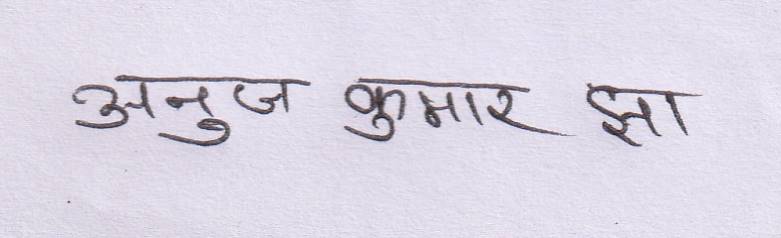 अनुज कुमार झा